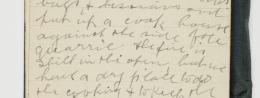 bags & dessians and
put up a cook house
against the side of the
quarrie the fire is
still in the open but we
have a dry place to do
the cooking & to keep the